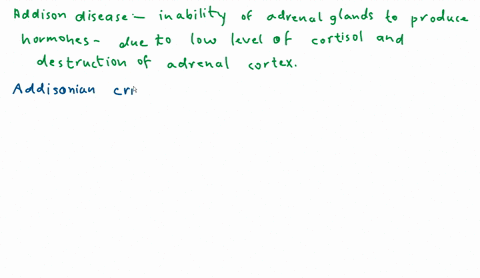 Addison disease:- inability of adrenal glands to produce
hormones- due to low level of cortisol and
destruction of adrenal cortex.
Addisonian cri